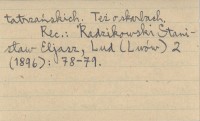 tatrzańskich. Też o skarbach.
Rec.: Radzikowski Stani-
sław Eljasz, Lud (Lwów) 2
(1896): 78-79.